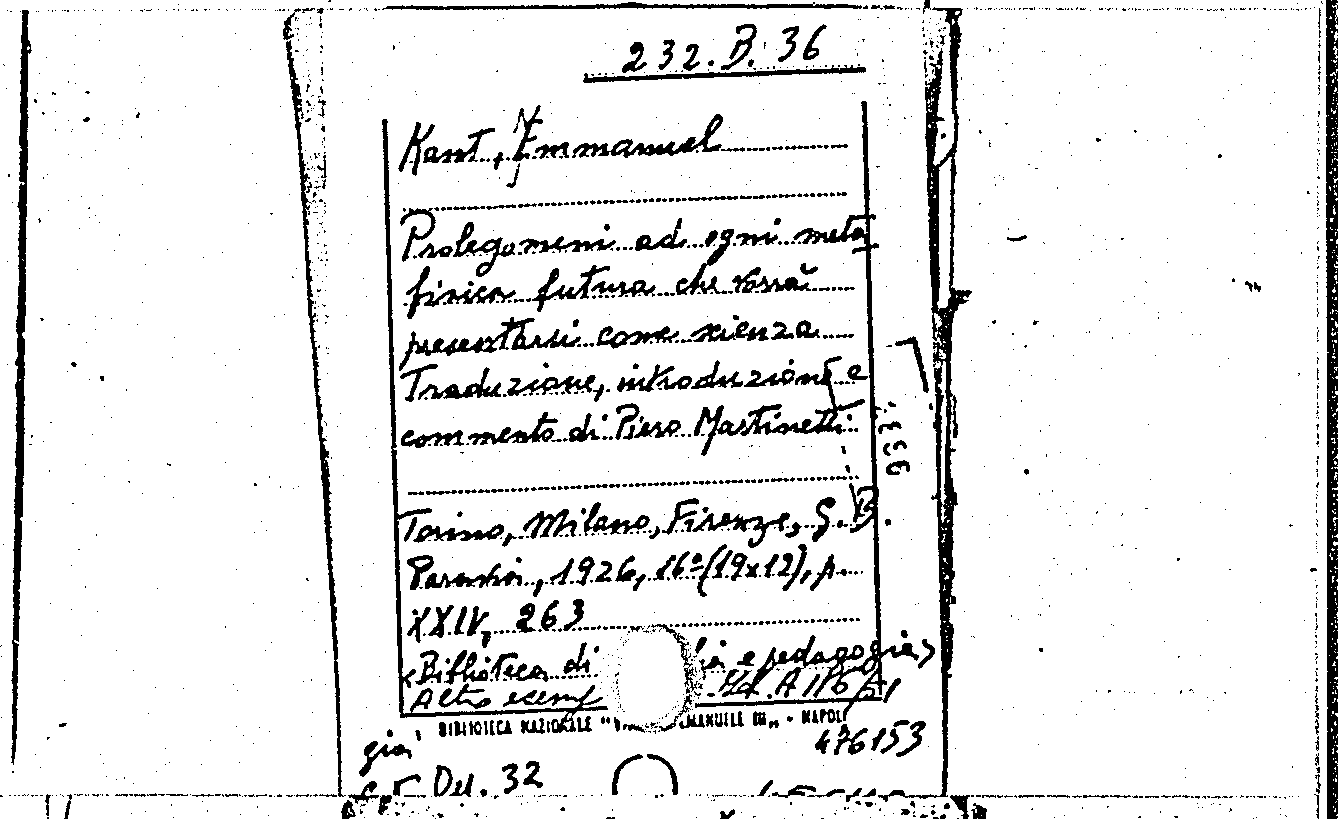 232.B.36
Kant, Emmanuel
Prolegomeni ad ogni meta
fisica futura che vorrà
presentarsi come scienza
Traduzione, introduzione e
commento di Piero Martinetti
Torino, Milano, Firenze, G.B.
Paravia, 1926, 16º (19x12), p.
XXIV, 263
«Biblioteca di fia e pedagogia»
Altro esemp
BIBLIOTECA NAZIONALE "VI EMANUELE III„ - NAPOLI
già 476153
32